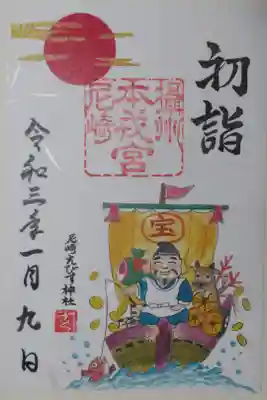 初詣
攝州
本戎宮
尼崎
宝
尼崎えびす神社
令和三年一月九日